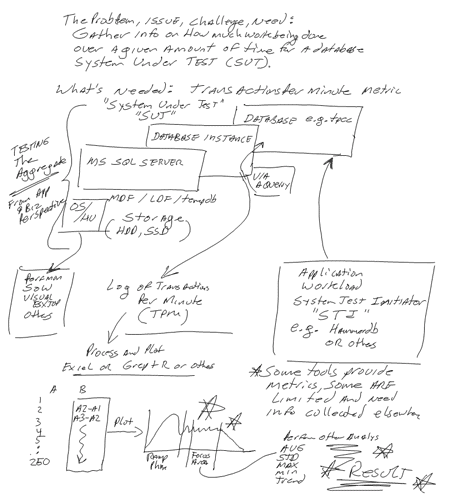 The Problem, Issue, Challenge, Need:
Gather info on How much work being done
over a given Amount of time for A database
System Under TEST (SUT).
What's Needed: TransActions Per Minute Metric
"System Under Test"
"SUT"
DATABASE e.g. tpcc
DATABASE INSTANCE
MS SQL SERVER
TESTING
The
Aggregate
From App
& Biz
Perspective
VIA
A QUERY
MDF/LDF/tempdb
OS/
HV
Storage
(HDD, SSD)
Perfmon
SQW
VISUAL
ESXTOP
others
Log OF TransActions
Per Minute
(TPM)
Application
Workload
System Test Initiator
"STI"
e.g. Hammerdb
OR others
Process and Plot
Excel OR Grep + R or others
*Some tools provide
Metrics, Some ARE
Limited And Need
Info collected elsewhere
A B
1
2
3
4
5
250
A2-A1
A3-A2
Plot
Ramp
Phase
Focus
Area
Perform other Analysis
AVG
STD
MAX
Min
Trend
RESULT